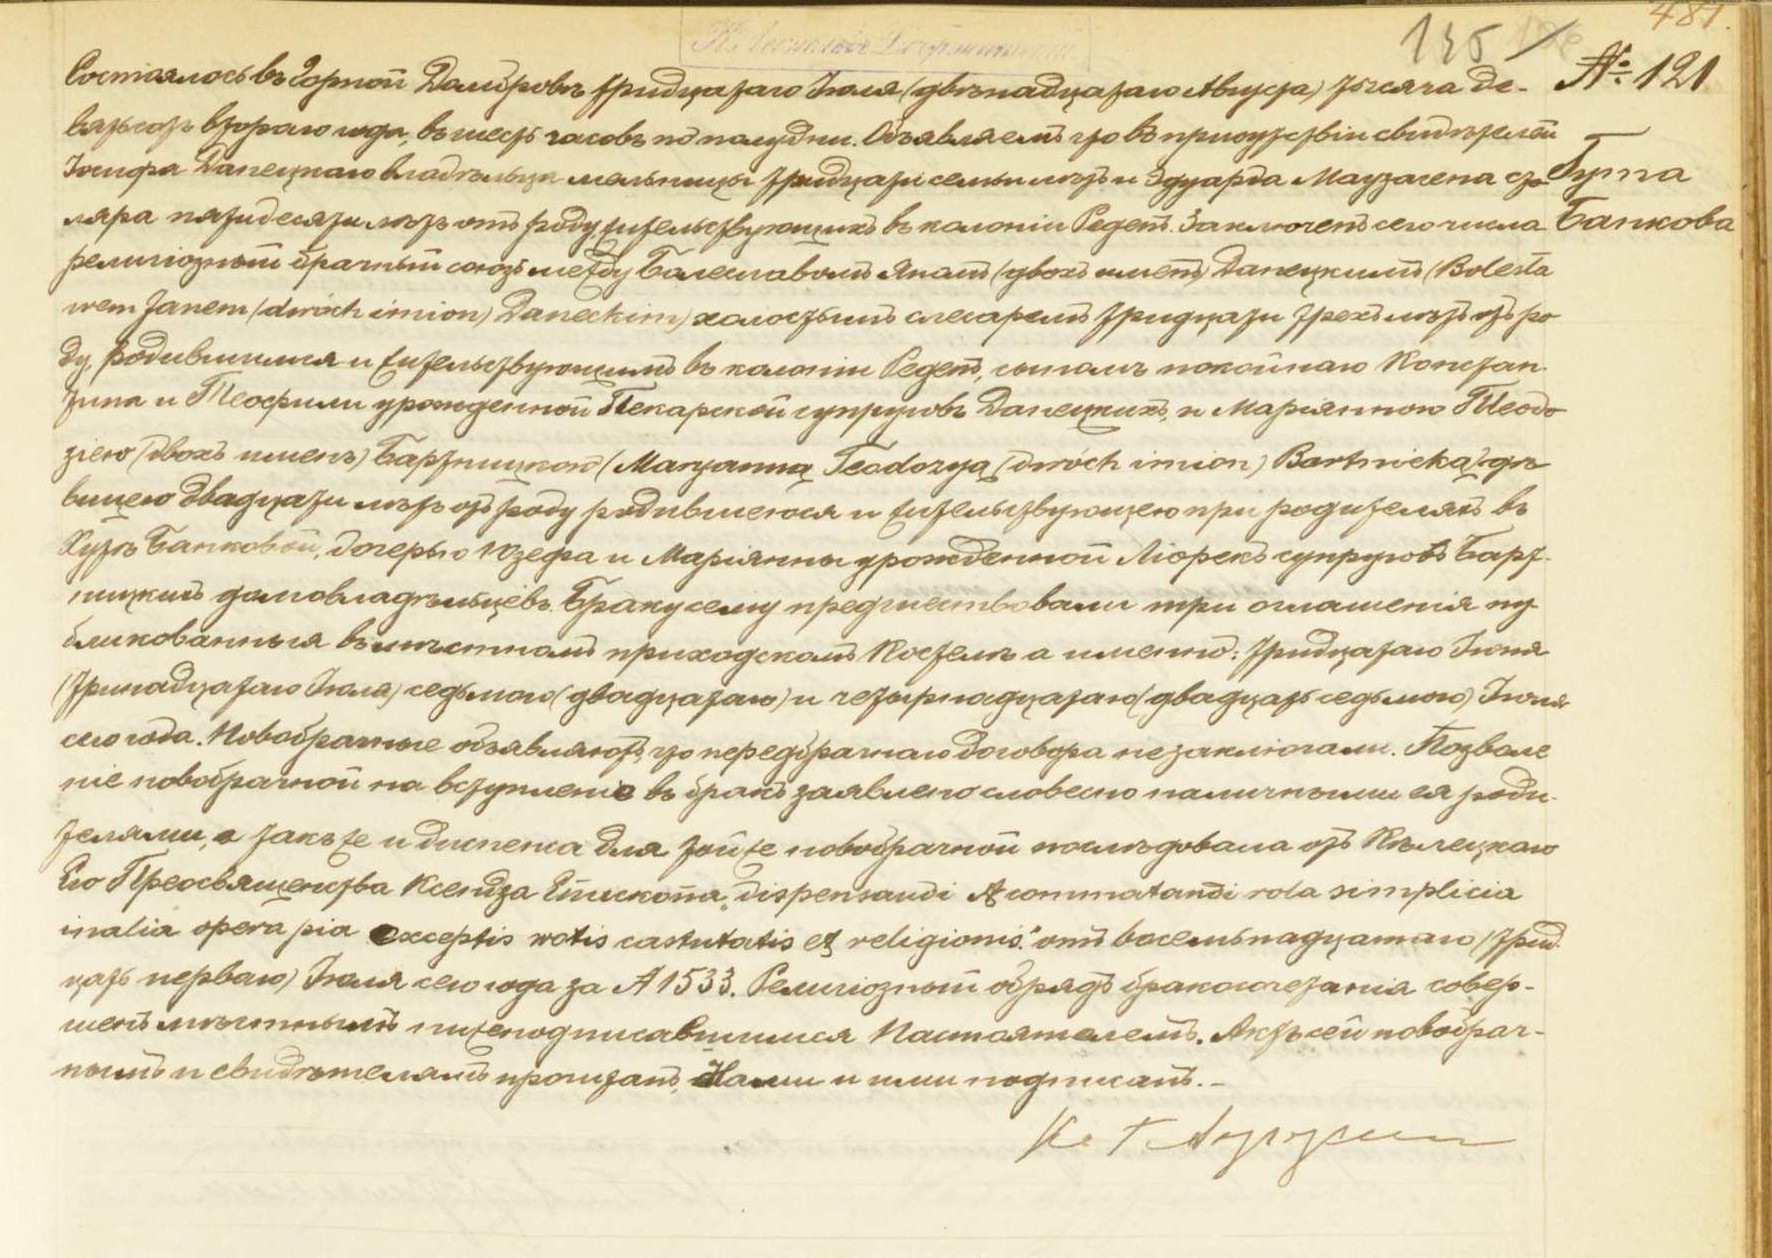 487.
145
№ 121
Гута
Банкова
Состоялось въ Горной Домбровѣ тридцатаго Іюля (двѣнадцатаго Августа) тысяча де-
вятьсотъ второго года, въ шесть часовъ по полудни. Объявляемъ что въ присутствіи свидѣтелей
Іосифа Данецкаго владѣльца мельницы тридцати семи лѣтъ и Эдуарда сто-
ляра пятидесяти лѣтъ отъ роду жительствующихъ въ колоніи Редень. Заключенъ сего числа
религіозный брачный союзъ между Болеславомъ Яномъ (двохъ именъ) Данецкимъ (Bolesła
wem Janem (dwóch imion) Daneckim) холостымъ слесаремъ тридцати трехъ лѣтъ отъ ро
ду, родившимся и жительствующимъ въ колоніи Редень, сыномъ покойнаго Констан
тина и Теофили урожденной Пекарской супруговъ Данецкихъ, и Маріянною Теодо
зіею (двохъ именъ) Бартницкою (Maryanną Teodozyą (dwóch imion) Bartnicką) дѣ
вицею двадцати лѣтъ отъ роду родившеюся и жительствующею при родителяхъ въ
Хутѣ Банковой, дочерью Юзефа и Маріянны урожденной Ліорекъ супруговъ Барт-
ницкихъ домовладѣльцевъ. Браку сему предшествовали три оглашенія пу
бликованныя въ мѣстномъ приходскомъ Костелѣ а именно: тридцатаго Іюня
(тринадцатаго Іюля) седьмого (двадцатаго) и четырнадцатаго (двадцать седьмого) Іюля
сего года. Новобрачные объявляютъ, что передбрачнаго договора не заключали. Позволе
ніе новобрачной на вступленіе въ бракъ заявлено словесно наличными ея роди-
телями, а такъже и диспенса для тойже новобрачной послѣдовала отъ Кѣлецкаго
Его Преосвященства Ксендза Епископа „dispensandi et commutandi vota simplicia
in alia opera pia exceptis votis castutatis et religionis.“ отъ восемьнадцатаго (трид
цать перваго) Іюля сего года за № 1533. Религіозный обрядъ бракосочетанія совер-
шенъ мѣстнымъ нижеподписавшимся Настоятелемъ. Актъ сей новобрач-
нымъ и свидѣтелямъ прочитанъ, Нами и ими подписанъ. -